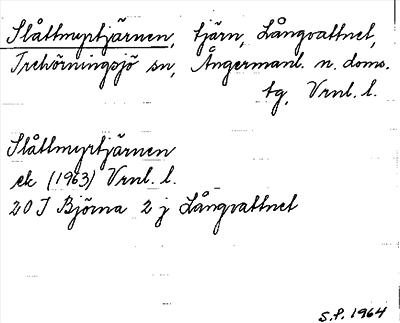 Slåttmyrtjärnen, tjärn, Långvattnet,
Trehörningsjö sn, Ångermanl. n. doms.
tg, Vrnl. l.
Slåttmyrtjärnen
ek (1963) Vrnl. l.
20 J Björna 2 j Långvattnet
S.P. 1964